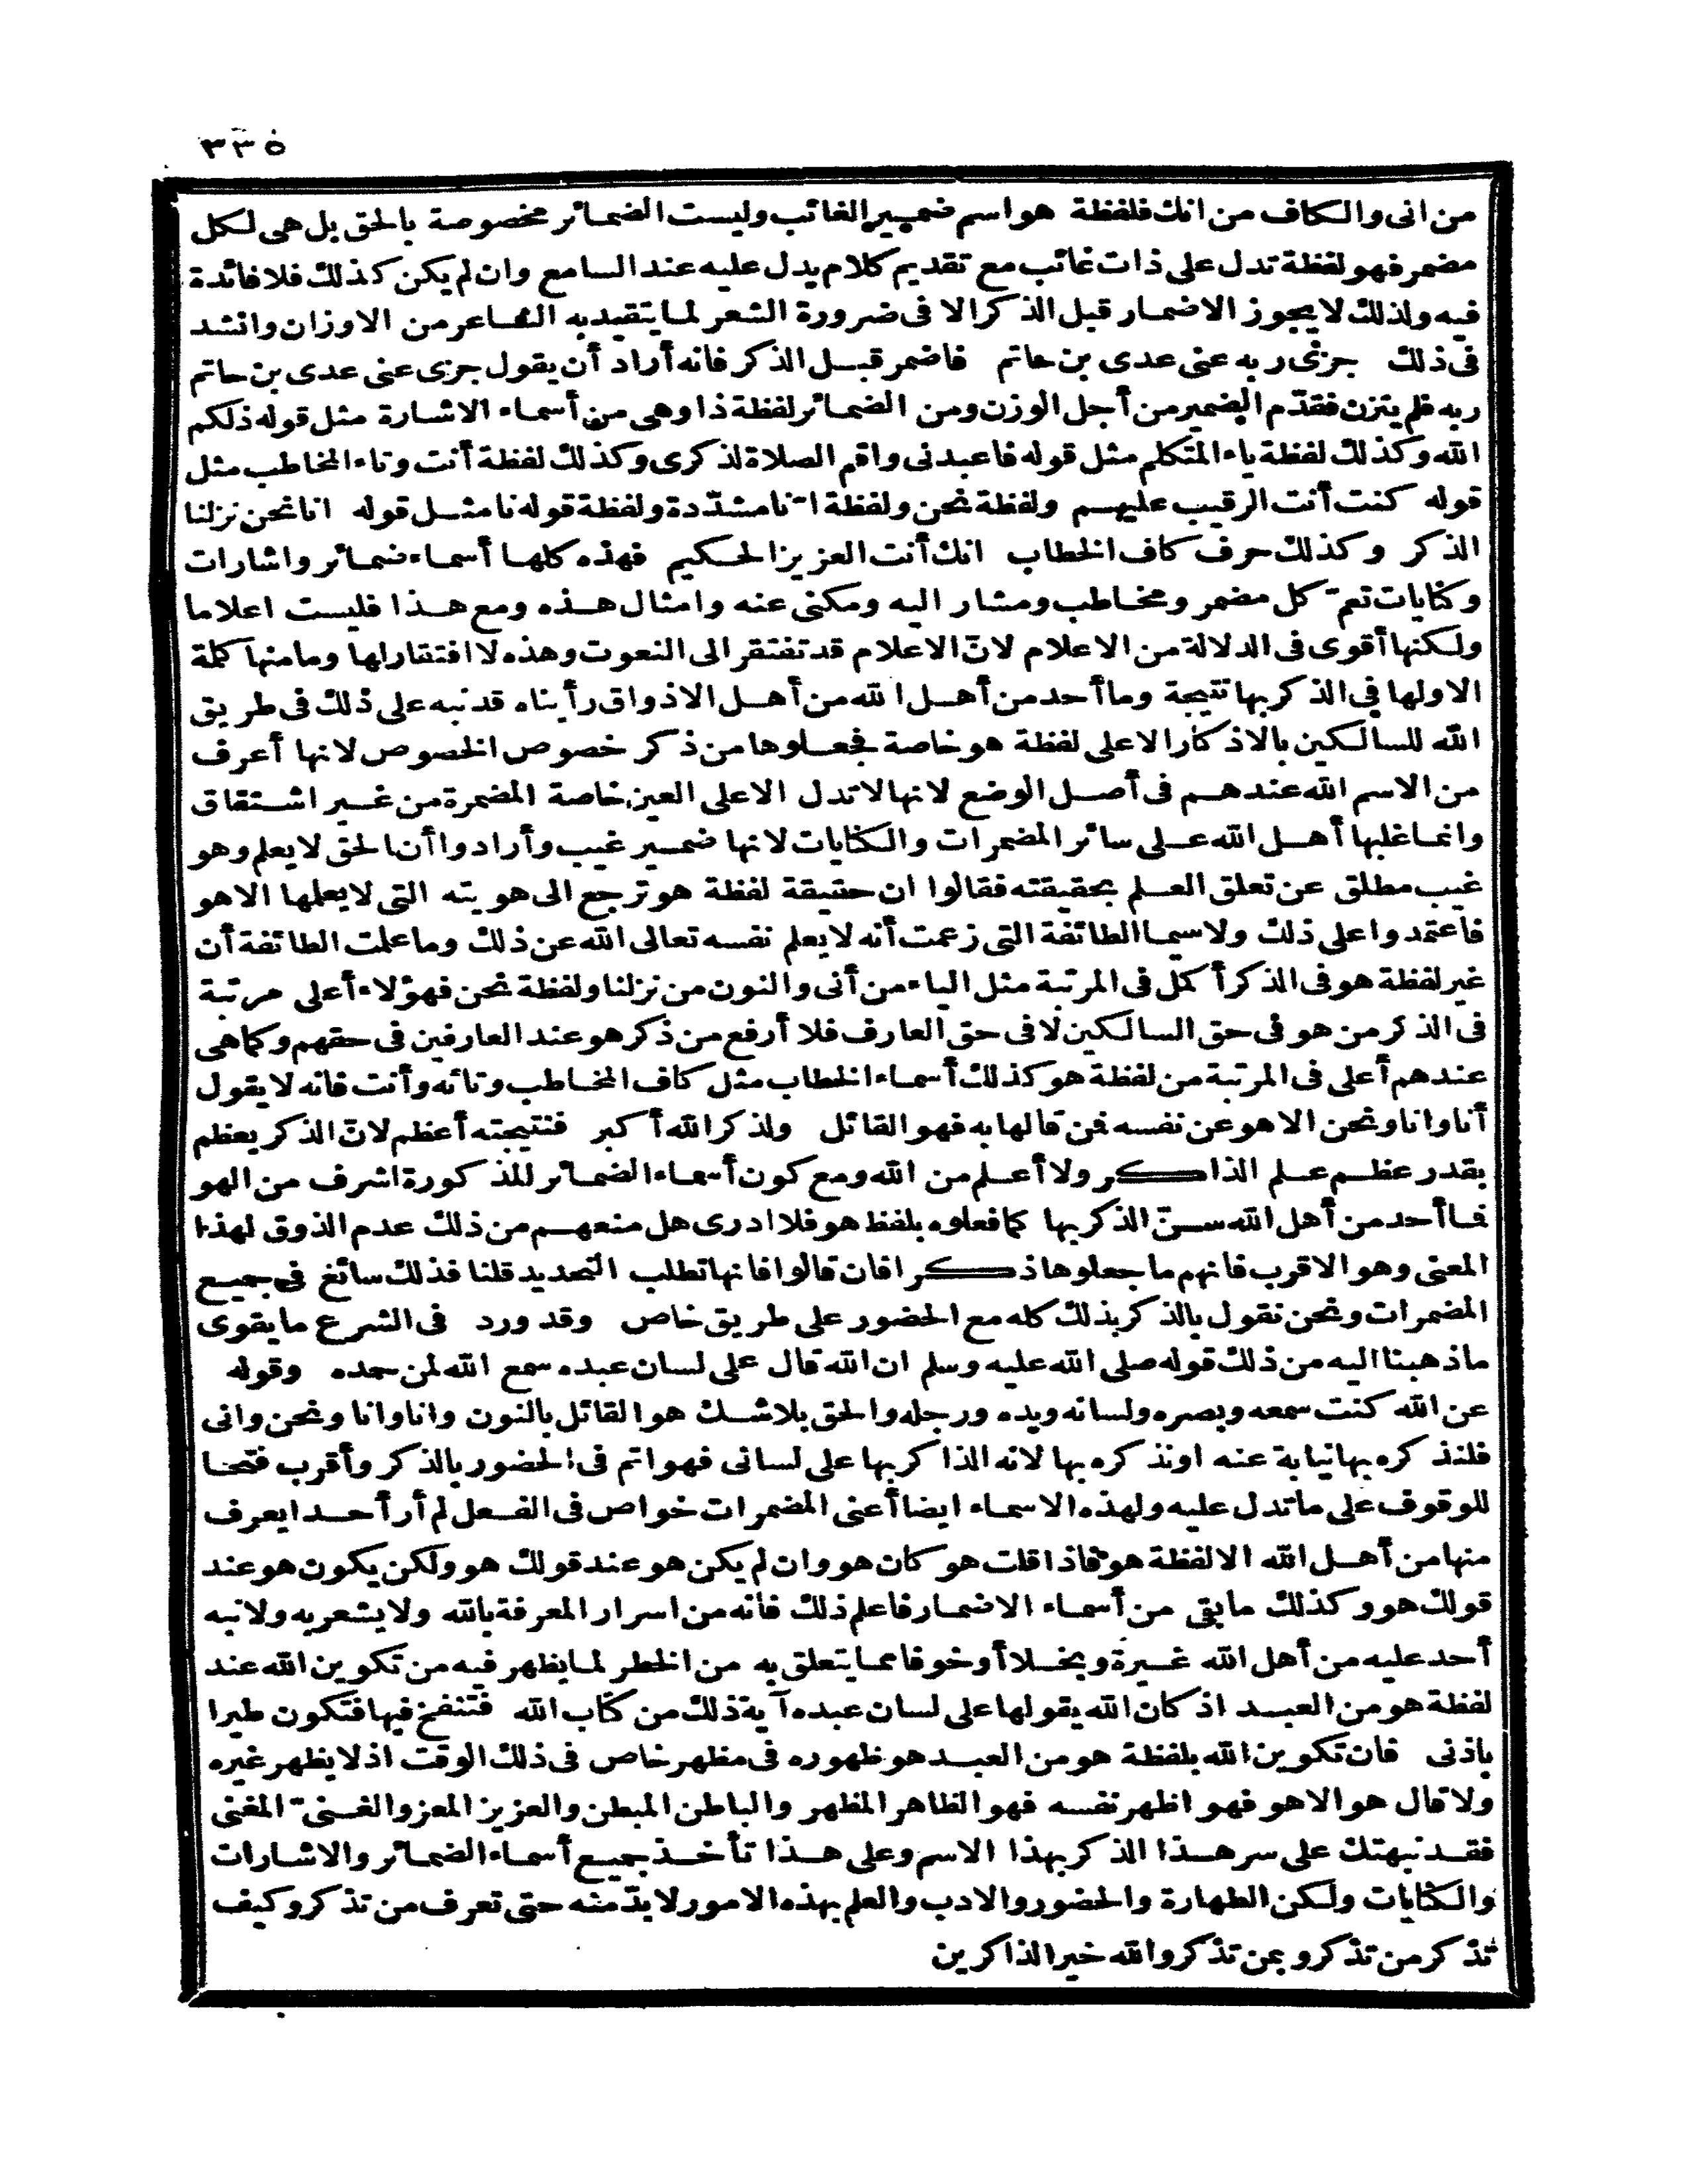 ٣٣٥
من انى والكاف من انك فلفظة هو اسم ضمير الغائب وليست الضمائر مخصوصة بالحق بل هى لكل
مضمر فهو لفظة تدل على ذات غائب مع تقديم كلام يدل عليه عند السامع وان لم يكن كذلك فلا فائدة
فيه ولذلك لا يجوز الاضمار قبل الذكر الا فى ضرورة الشعر لما يتقيد به الشاعر من الاوزان وانشد
فى ذلك جزى ربه عنى عدى بن حاتم فاضمر قبل الذكر فانه أراد أن يقول جزى عنى عدى بن حاتم
ربه فلم يتزن فقدّم الضمير من أجل الوزن ومن الضمائر لفظة ذا وهى من أسماء الاشارة مثل قوله ذلكم
الله وكذلك لفظة ياء المتكلم مثل قوله فاعبدنى واقم الصلاة لذكرى وكذلك لفظة أنت وتاء المخاطب مثل
قوله كنت أنت الرقيب عليهم ولفظة نحن ولفظة انّا مشدّدة ولفظة قوله نا مثل قوله انا نحن نزلنا
الذكر وكذلك حرف كاف الخطاب انك أنت العزيز الحكيم فهذه كلها أسماء ضمائر واشارات
وكنايات تعمّ كل مضمر ومخاطب ومشار اليه ومكنى عنه وامثال هذه ومع هذا فليست اعلاما
ولكنها أقوى فى الدلالة من الاعلام لانّ الاعلام قد تفتقر الى النعوت وهذه لا افتقار لها وما منها كلمة
الا ولها فى الذكر بها نتيجة وما أحد من أهل الله من أهل الاذواق رأيناه قد نبه على ذلك فى طريق
الله للسالكين بالاذكار الا على لفظة هو خاصة فجعلوها من ذكر خصوص الخصوص لانها أعرف
من الاسم الله عندهم فى أصل الوضع لانها لا تدل الا على العين خاصة المضمرة من غير اشتقاق
وانما غلبها أهل الله على سائر المضمرات والكنايات لانها ضمير غيب وأرادوا أن الحق لا يعلم وهو
غيب مطلق عن تعلق العلم بحقيقته فقالوا ان حقيقة لفظة هو ترجع الى هويته التى لا يعلمها الا هو
فاعتمدوا على ذلك ولا سيما الطائفة التى زعمت أنه لا يعلم نفسه تعالى الله عن ذلك وما علمت الطائفة أن
غير لفظة هو فى الذكر أكمل فى المرتبة مثل الياء من أنى والنون من نزلنا ولفظة نحن فهؤلاء أعلى مرتبة
فى الذكر من هو فى حق السالكين لا فى حق العارف فلا أرفع من ذكر هو عند العارفين فى حقهم وكما هى
عندهم أعلى فى المرتبة من لفظة هو كذلك أسماء الخطاب مثل كاف المخاطب وتائه وأنت فانه لا يقول
أنا وانا ونحن الا هو عن نفسه فمن قالها به فهو القائل ولذكر الله أكبر فنتيجته أعظم لانّ الذكر يعظم
بقدر عظم علم الذاكر ولا أعلم من الله ومع كون أسماء الضمائر المذكورة اشرف من الهو
فما أحد من أهل الله سنّ الذكر بها كما فعلوه بلفظ هو فلا ادرى هل منعهم من ذلك عدم الذوق لهذا
المعنى وهو الاقرب فانهم ما جعلوها ذكرا فان قالوا فانها تطلب التحديد قلنا فذلك سائغ فى جميع
المضمرات ونحن نقول بالذكر بذلك كله مع الحضور على طريق خاص وقد ورد فى الشرع ما يقوى
ما ذهبنا اليه من ذلك قوله صلى الله عليه وسلم ان الله قال على لسان عبده سمع الله لمن حمده وقوله
عن الله كنت سمعه وبصره ولسانه ويده ورجله والحق بلا شك هو القائل بالنون وانا وانا ونحن وانى
فلنذكره بها نيابة عنه او نذكره بها لانه الذاكر بها على لسانى فهو اتم فى الحضور بالذكر وأقرب فتحا
للوقوف على ما تدل عليه ولهذه الاسماء ايضا أعنى المضمرات خواص فى الفعل لم أر أحدا يعرف
منها من أهل الله الا لفظة هو فاذا قلت هو كان هو وان لم يكن هو عند قولك هو ولكن يكون هو عند
قولك هو وكذلك ما بقى من أسماء الاضمار فاعلم ذلك فانه من اسرار المعرفة بالله ولا يشعر به ولا نبه
أحد عليه من أهل الله غيرة وبخلا أو خوفا مما يتعلق به من الخطر لما يظهر فيه من تكوين الله عند
لفظة هو من العبد اذ كان الله يقولها على لسان عبده آية ذلك من كتاب الله فتنفخ فيها فتكون طيرا
باذنى فان تكوين الله بلفظة هو من العبد هو ظهوره فى مظهر خاص فى ذلك الوقت اذ لا يظهر غيره
ولا قال هو الا هو فهو اظهر نفسه فهو الظاهر المظهر والباطن المبطن والعزيز المعز والغنىّ المغنى
فقد نبهتك على سر هذا الذكر بهذا الاسم وعلى هذا تأخذ جميع أسماء الضمائر والاشارات
والكنايات ولكن الطهارة والحضور والادب والعلم بهذه الامور لا بدّ منه حتى تعرف من تذكر وكيف
تذكر من تذكر وبمن تذكر والله خير الذاكرين